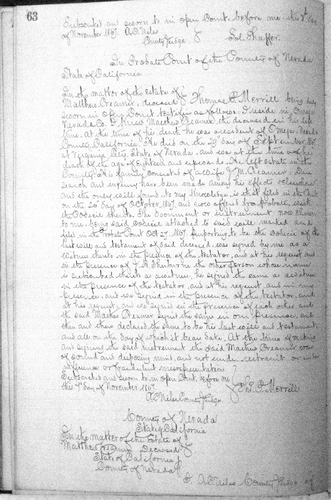 63
Subscribed and sworn to in open Court before me this 9th day
of November 1867. A.C. Niles
County Judge Sol. Shaffer
In Probate Court of the County of Nevada
State of California
In the matter of the estate of
Matthew Creamer, deceased Thomas P. Merrill being duly
sworn in open Court testifies as follows. I reside in
Nevada Co. I knew Matthew Creamer the deceased in his life
time. At the time of his death he was a resident of
County, California. He died on the day of September 1867
at Virginia City, State of Nevada, and was at the time of his
death of the age of and upwards. He left estate in this
County. His family consisted of a wife
Search and inquiry has been made among his effects
and the only will found to my knowledge is that filed in this Court
on the day of October 1867, and now offered for probate with
the Codicil thereto. The document or instrument now shown
to me, and said codicil attached to said will marked and
filed in the Probate Court Oct 1867, purporting to be the Codicil of the
last will and testament of said deceased, was signed by me as a
witness thereto in the presence of the testator, and at his request and
in the presence of the other person whose name
is subscribed thereto as a witness, he signed the same as a witness
in the presence of the testator, and at his request, and in my
presence, and we signed in the presence of the testator, and
at his request, and we signed in the presence of each other and
the said Matthew Creamer signed the same in our presence, and
then and there declared the same to be his last will and testament,
and all on the day of which it bears date. At the time of making
and signing the said instrument the said Matthew Creamer was
of sound and disposing mind, and not under restraint or undue
influence or fraudulent misrepresentation.
Subscribed and sworn to in open Court before me
this 9th day of November 1867. Thos. P. Merrill
A.C. Niles County Judge
County of Nevada
State of California
In the matter of the Estate of
Matthew Creamer Deceased
State of California
County of Nevada
I, A.C. Niles County Judge of